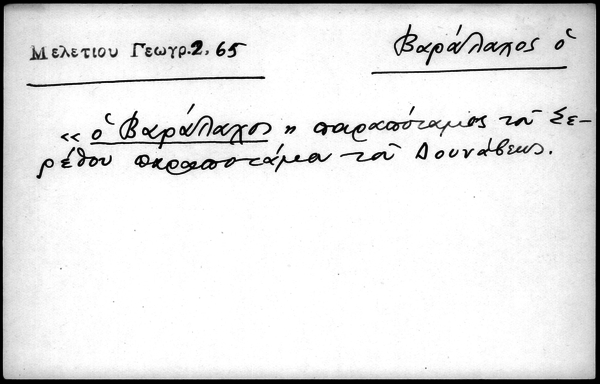 Μελετιου Γεωγρ. 2, 65
Βαράλαχος ὁ
« ὁ Βαράλαχος » παραπόταμος τοῦ Σε-
ρέθου παραποτάμου τοῦ Δουνάβεως.